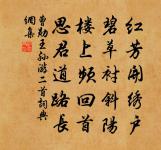 红芳開绣户
碧草衬斜陽
楼上频回首
思君道路長
曹勋王孙游二首詞典
網集